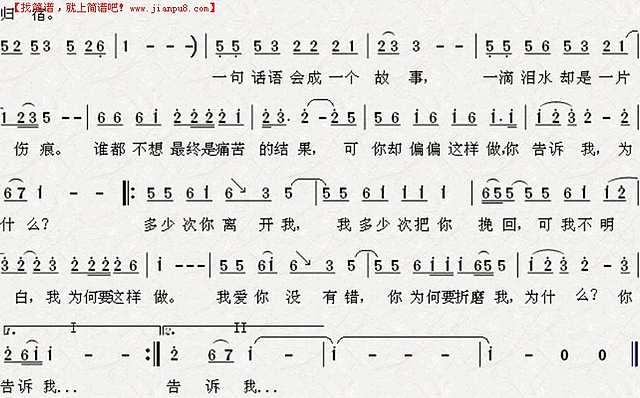 【找简谱，就上简谱吧！】www.jianpu8.com
归 宿。
52 53 5 26 | 1 - - ) | 55 53 22 21 | 23 3 - - | 55 56 53 21 |
一句 话语 会成 一个 故 事， 一滴 泪水 却是 一片
1 235 - - | 66 61 22222 | 23·2 - 25 | 56 616 66 1·1 | 1232 - 2 |
伤 痕。 谁都 不想 最终是痛苦 的结 果， 可 你却 偏偏 这样 做,你 告诉 我， 为
671 - - ‖: 55 61 6 35 | 5 55 61 | 6555 61 12 |
什么？ 多少 次你 离 开我， 我 多少 次把 你 挽回，可 我不 明
3223 222226 | 1 - - - | 55 61 6 35 | 5 56 111165 | 1232 - 3 |
白，我 为何要这样 做。 我爱 你 没 有错， 你 为何要折磨 我，为什 么？ 你
I II
2 611 - - :‖ 2 67 1 | 1 - - - | 1 - 0 0 ‖
告诉 我... 告 诉 我...